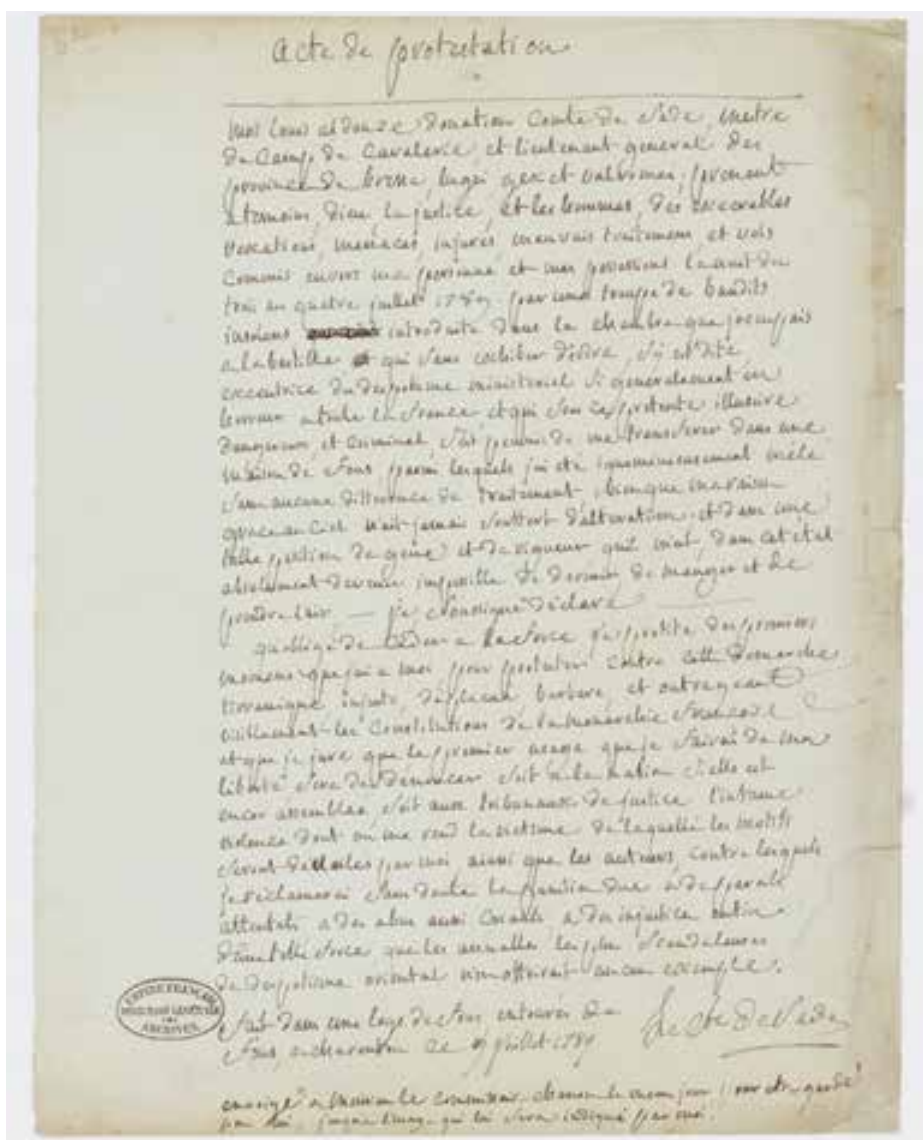 acte de protestation
moi Louis aldonze Donatien Comte de Sade, mestre
de Camp de Cavalerie et lieutenant general des
province de bresse, bugei gex et valromei, prenant
a temoins, dieu, la justice, et les hommes, des execrables
vexations, menaces, injures, mauvais traitemens, et vols
Commis envers ma personne et mes possessions la nuit du
trois au quatre juillet 1789 par une troupe de bandits
introduite dans la chambre que j'occupais
a la bastille et qui sans exhiber d'ordre, s'est dite
executrice du despotisme ministeriel si generalement en
horreur a toute la france et qui sous ce pretexte illusoire
dangereux, et criminel s'est permis de me transferer dans une
maison de fous parmi lesquels j'ai eté ignominieusement mêlé
sans aucune difference de traitement, bienque ma raison
grace au Ciel n'ait jamais souffert d'alteration et dans une
telle position de gene et de rigueur qu'il m'est, dans cet etat
absolument devenu impossible de dormir de manger et de
prendre l'air — je soussigné déclare
qu'obligé de céder a la force je profite des premiers
momens que j'ai a moi pour protester contre cette demarche
tirannique injuste, deplacée barbare, et outrageant
les Constitutions de la monarchie francoise
et que je jure que le premier usage que je ferai de ma
liberté sera de denoncer soit a la nation si elle est
encor assemblée, soit aux tribunaux de justice l'infame
violence dont on me rend la victime de laquelle les motifs
seront devoiles par moi ainsi que les auteurs, contre lesquels
je réclamerai sans doute la punition due a de pareils
attentats a des abus aussi a des injustice enfin
d'une telle force que les annalles les plus scandaleuses
du despotisme oriental n'en offriraient aucun exemple.
fait dans une loge de fous, entouré de
fous, a charenton ce 9 juillet 1789
le Cte De Sade
envoyé a monsieur le commissaire chenon le meme jour pour etre gardé
par lui jusqu'a l'usage qui lui sera indiqué par moi.
EMPIRE FRANÇAIS
ARCHIVES